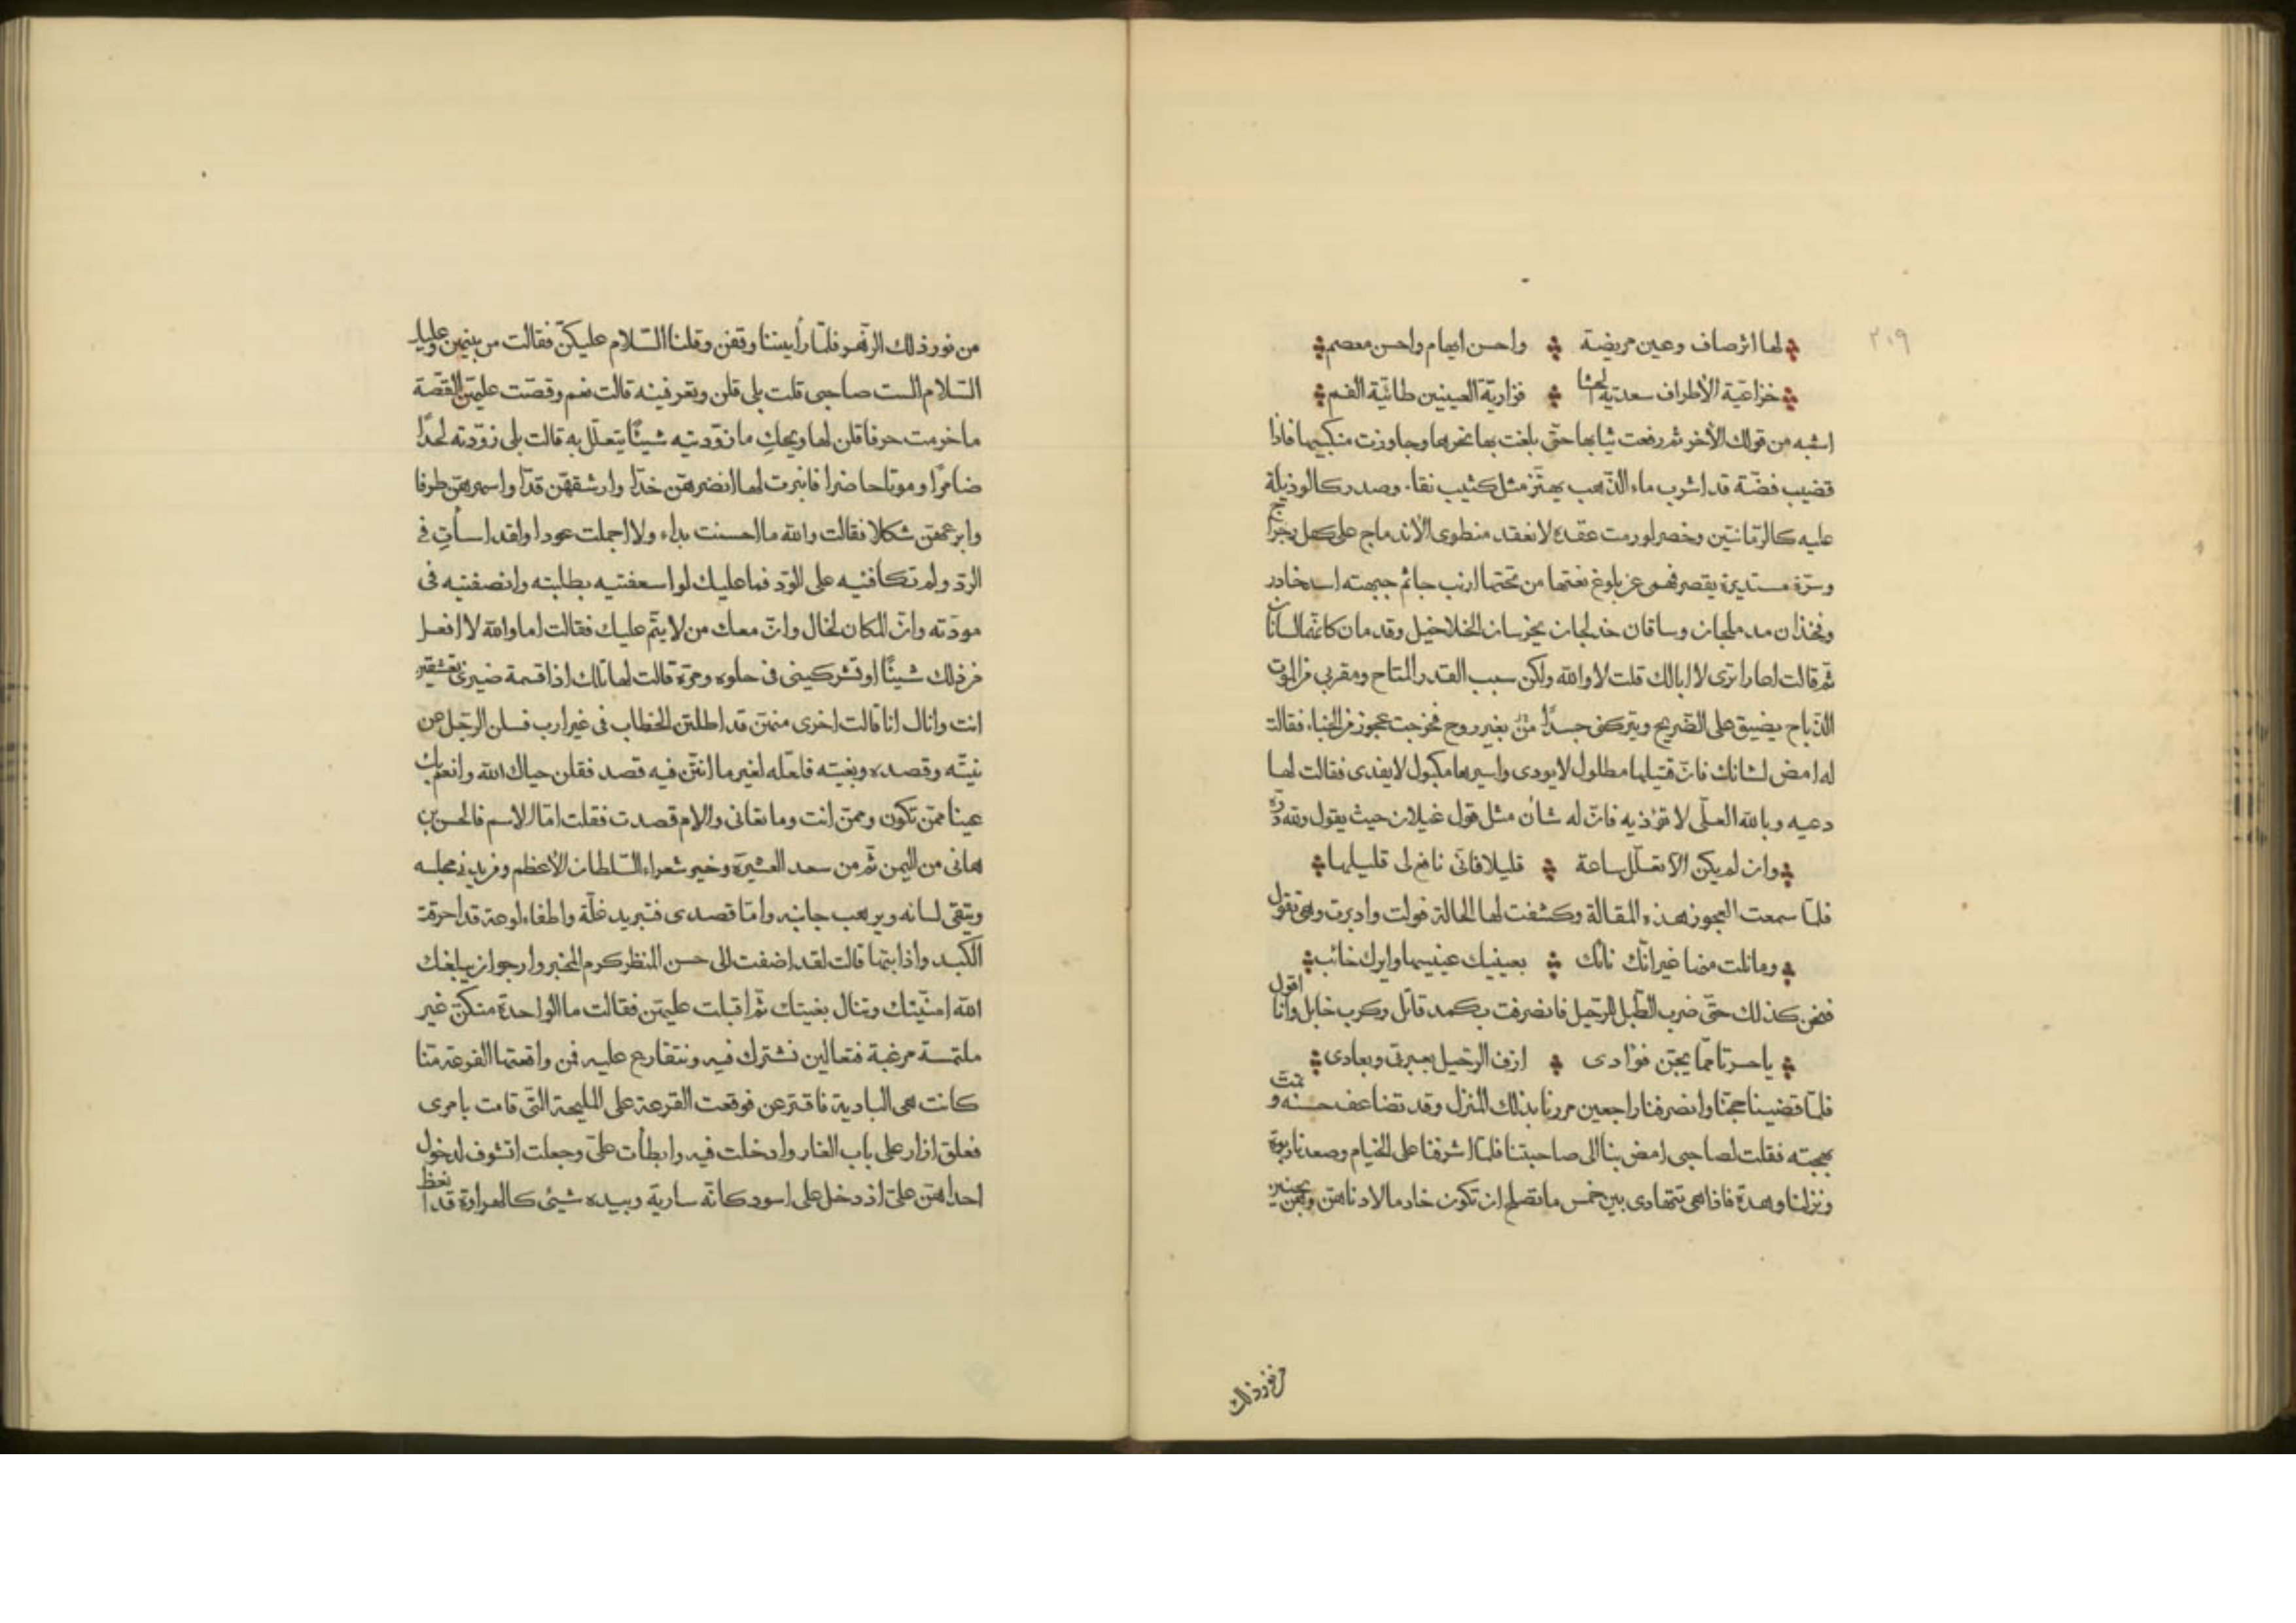 ٢٠٩
لها اثر صاف وعين مريضة واحسن ابهام واحسن معصم
خزاعية الأطراف سعدية الحشا فزارية العينين طائية الفم
اشبه من قولك الأخر ثم رفعت ثيابها حتى بلغت بها نحرها وجاوزت منكبيها فاذا
قضيب فضة قد اشرب ماء الذهب يهتز مثل كثيب نقاء وصدر كالوذيلة
عليه كالرمانتين وخصر لو رمت عقده لانعقد منطوى الاندماج على كفل رجراج
وسرة مستديرة يقصر فهمى عن بلوغ نعتها من تحتها ارنب جاثم جبهته اسد خادر
وفخذان مدملجان وساقان خدلجان يخرسان الخلاخيل وقدمان كانهما لسانان
ثم قالت اعارا ترى لا ابالك قلت لا والله ولكن سبب القدر المتاح ومقربى من الموت
الذباح يضيق على الضريح ويتركنى جسدًا من بغير روح فخرجت عجوز من الخباء فقالت
له امض لشانك فان قتيلها مطلول لا يودى واسيرها مكبول لا يفدى فقالت لها
دعيه وبالله العلى لا تؤذيه فان له شان مثل قول غيلان حيث يقول ولله دره
وان لم يكن الا تعلل ساعة قليلا فانى نافع لى قليلها
فلما سمعت العجوز هذه المقالة وكشفت لها الحالة فولت وادبرت وهى تقول
وما نلت منها غير انك نائك بعينيك عينيها وايرك خائب
فنحن كذلك حتى ضرب الطبل للرحيل فانصرفت بكمد قاتل وكرب خابل وانا اقول
يا حسرتا مما يجن فؤادى ازف الرحيل بعبرتى وبعادى
فلما قضينا حجنا وانصرفنا راجعين مررنا بذلك المنزل وقد تضاعف حسنه وتمت
بهجته فقلت لصاحبى امض بنا الى صاحبتنا فلما اشرفنا على الخيام وصعدنا ربوة
ونزلنا وهدة فاذا هى تتهادى بين خمس ما تصلح ان تكون خادما لادناهن وهن يجنين
من نور ذلك
من نور ذلك الزهر فلما رأيننا وقفن وقلنا السلام عليكن فقالت من بينهن وعليك
السلام الست صاحبى قلت بلى قلن وتعرفينه قالت نعم وقصت عليهن القصة
ما خرمت حرفا قلن لها ويحك ما زودتيه شيئًا يتعلل به قالت بلى زودته لحدًا
ضامرًا وموتا حاضرا فانبرت لها انضرهن خدا وارشقهن قدا واسحرهن طرفا
وابرعهن شكلا فقالت والله ما احسنت بداء ولا اجملت عودا ولقد اسأت فى
الرد ولم تكافئيه على الود فما عليك لو اسعفتيه بطلبته وانصفتيه فى
مودته وان المكان لخال وان معك من لا ينم عليك فقالت اما والله لا افعل
من ذلك شيئًا او تشركينى فى حلوه ومره قالت لها تلك اذا قسمة ضيزى تعشقين
انت وانال انا قالت اخرى منهن قد اطلتن الخطاب فى غير ارب فسلن الرجل عن
نيته وقصده وبغيته فلعله لغير ما انتن فيه قصد فقلن حياك الله وانعم بك
عينا ممن تكون وممن انت وما تعانى والام قصدت فقلت اما الاسم فالحسن بن
هانى من اليمن ثم من سعد العشيرة وخير شعراء السلطان الأعظم وفريد فى مجلسه
ويتقى لسانه ويرهب جانبه واما قصدى فتبريد غلة واطفاء لوعة قد احرقت
الكبد واذابتها قالت لقد اضفت الى حسن المنظر كرم المخبر وارجو ان يبلغك
الله امنيتك وتنال بغيتك ثم اقبلت عليهن فقالت ما الواحدة منكن غير
ملتمسة مرغبة فتعالين نشترك فيه ونتقارع عليه فمن واقعتها القرعة منا
كانت هى البادية فاقترعن فوقعت القرعة على المليحة التى قامت بامرى
فعلق ازار على باب الغار وادخلت فيه وابطأت على وجعلت اتشوف لدخول
احداهن على اذ دخل على اسود كانه سارية وبيده شيئ كالهراوة قد انعظ